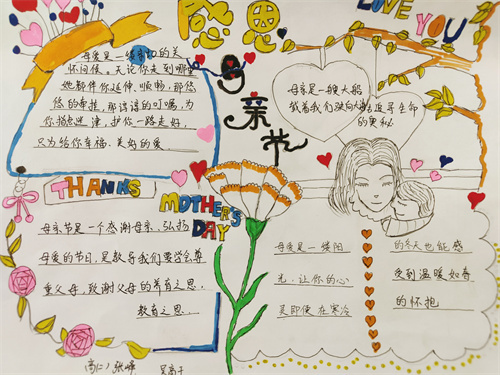 感恩
母亲节
LOVE YOU
母爱是一缕音切的关
怀问候。无论你走到哪里
她都伴你延伸、顺畅，那悠
悠的牵挂，那谆谆的叮嘱，为
你指点迷津，护你一路走好，
只为给你幸福、美好的爱
母亲是一艘大船
载着我们驶向大海
去追寻生命
的奥秘
THANKS
MOTHER'S
DAY
母亲节是一个感谢母亲、弘扬
母爱的节日，是教导我们要学会尊
重父母，致谢父母的养育之恩，
教育之恩．
母爱是一缕阳
光，让你的心
灵即使在寒冷
的冬天也能感
受到温暖如春
的怀抱